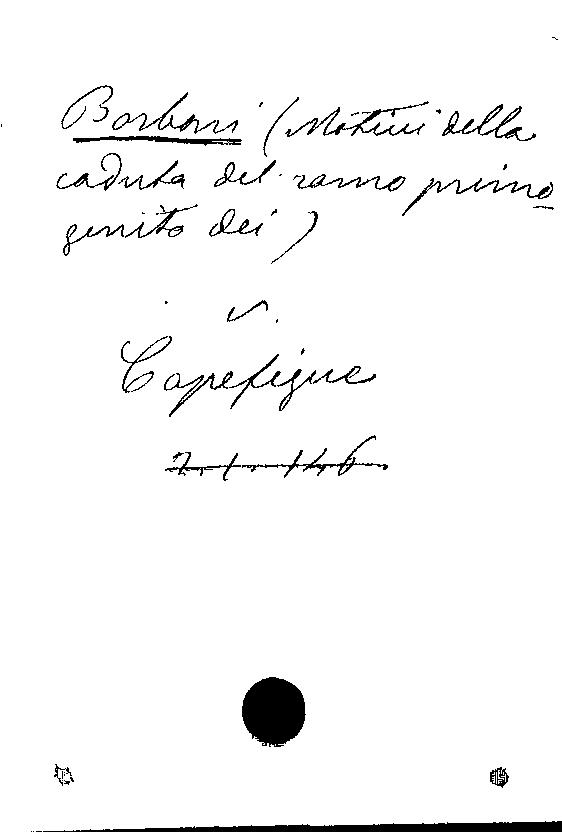 Borboni (Motivi della
caduta del ramo primo
genito dei)
v.
Capefigue
2. 1. 146.